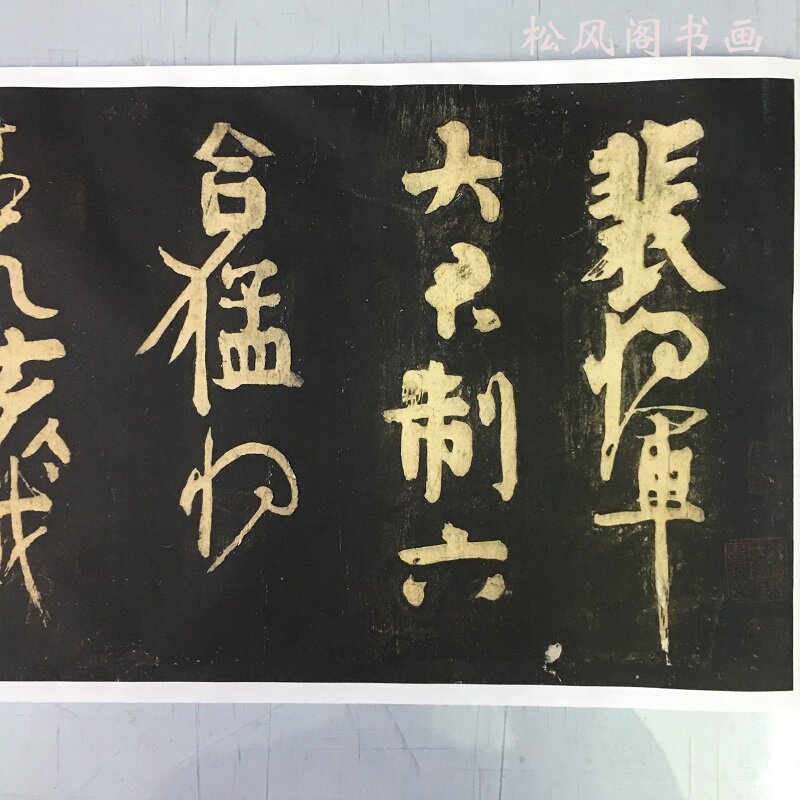 松风阁书画
裴将軍
大君制六
合猛将